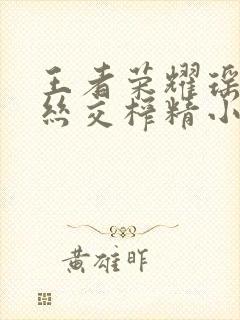 王者荣耀瑶
丝交榨精小
黄雄昨